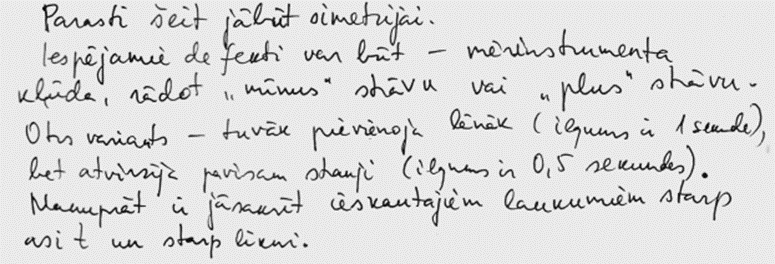 Parasti šeit jābūt simetrijai.
Iespējamie defekti var būt – mērinstrumenta
kļūda, rādot „mīnus“ strāvu vai „plus“ strāvu.
Otrs variants – tuvāk pievienoja lēnāk (ilgums ir 1 sekunde),
bet atvirzīja pavisam strauji (ilgums ir 0,5 sekundes).
Manuprāt ir jāsakrīt ieskautajiem laukumiem starp
asi t un starp līkni.